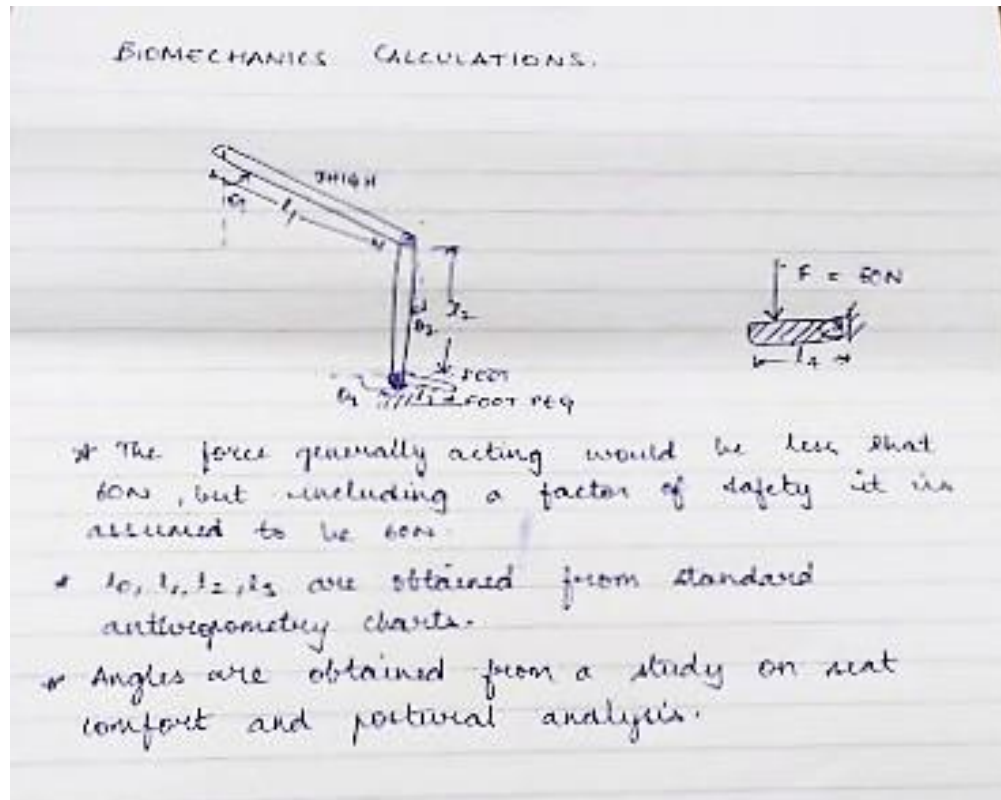 BIOMECHANICS CALCULATIONS.
THIGH
θ1
l1
F = 60N
θ2
l2
l4
FOOT
FOOT PEG
* The force generally acting would be less that
60N, but including a factor of safety it is
assumed to be 60N.
* l0, l1, l2, l3 are obtained from standard
anthropometry charts.
* Angles are obtained from a study on seat
comfort and postural analysis.